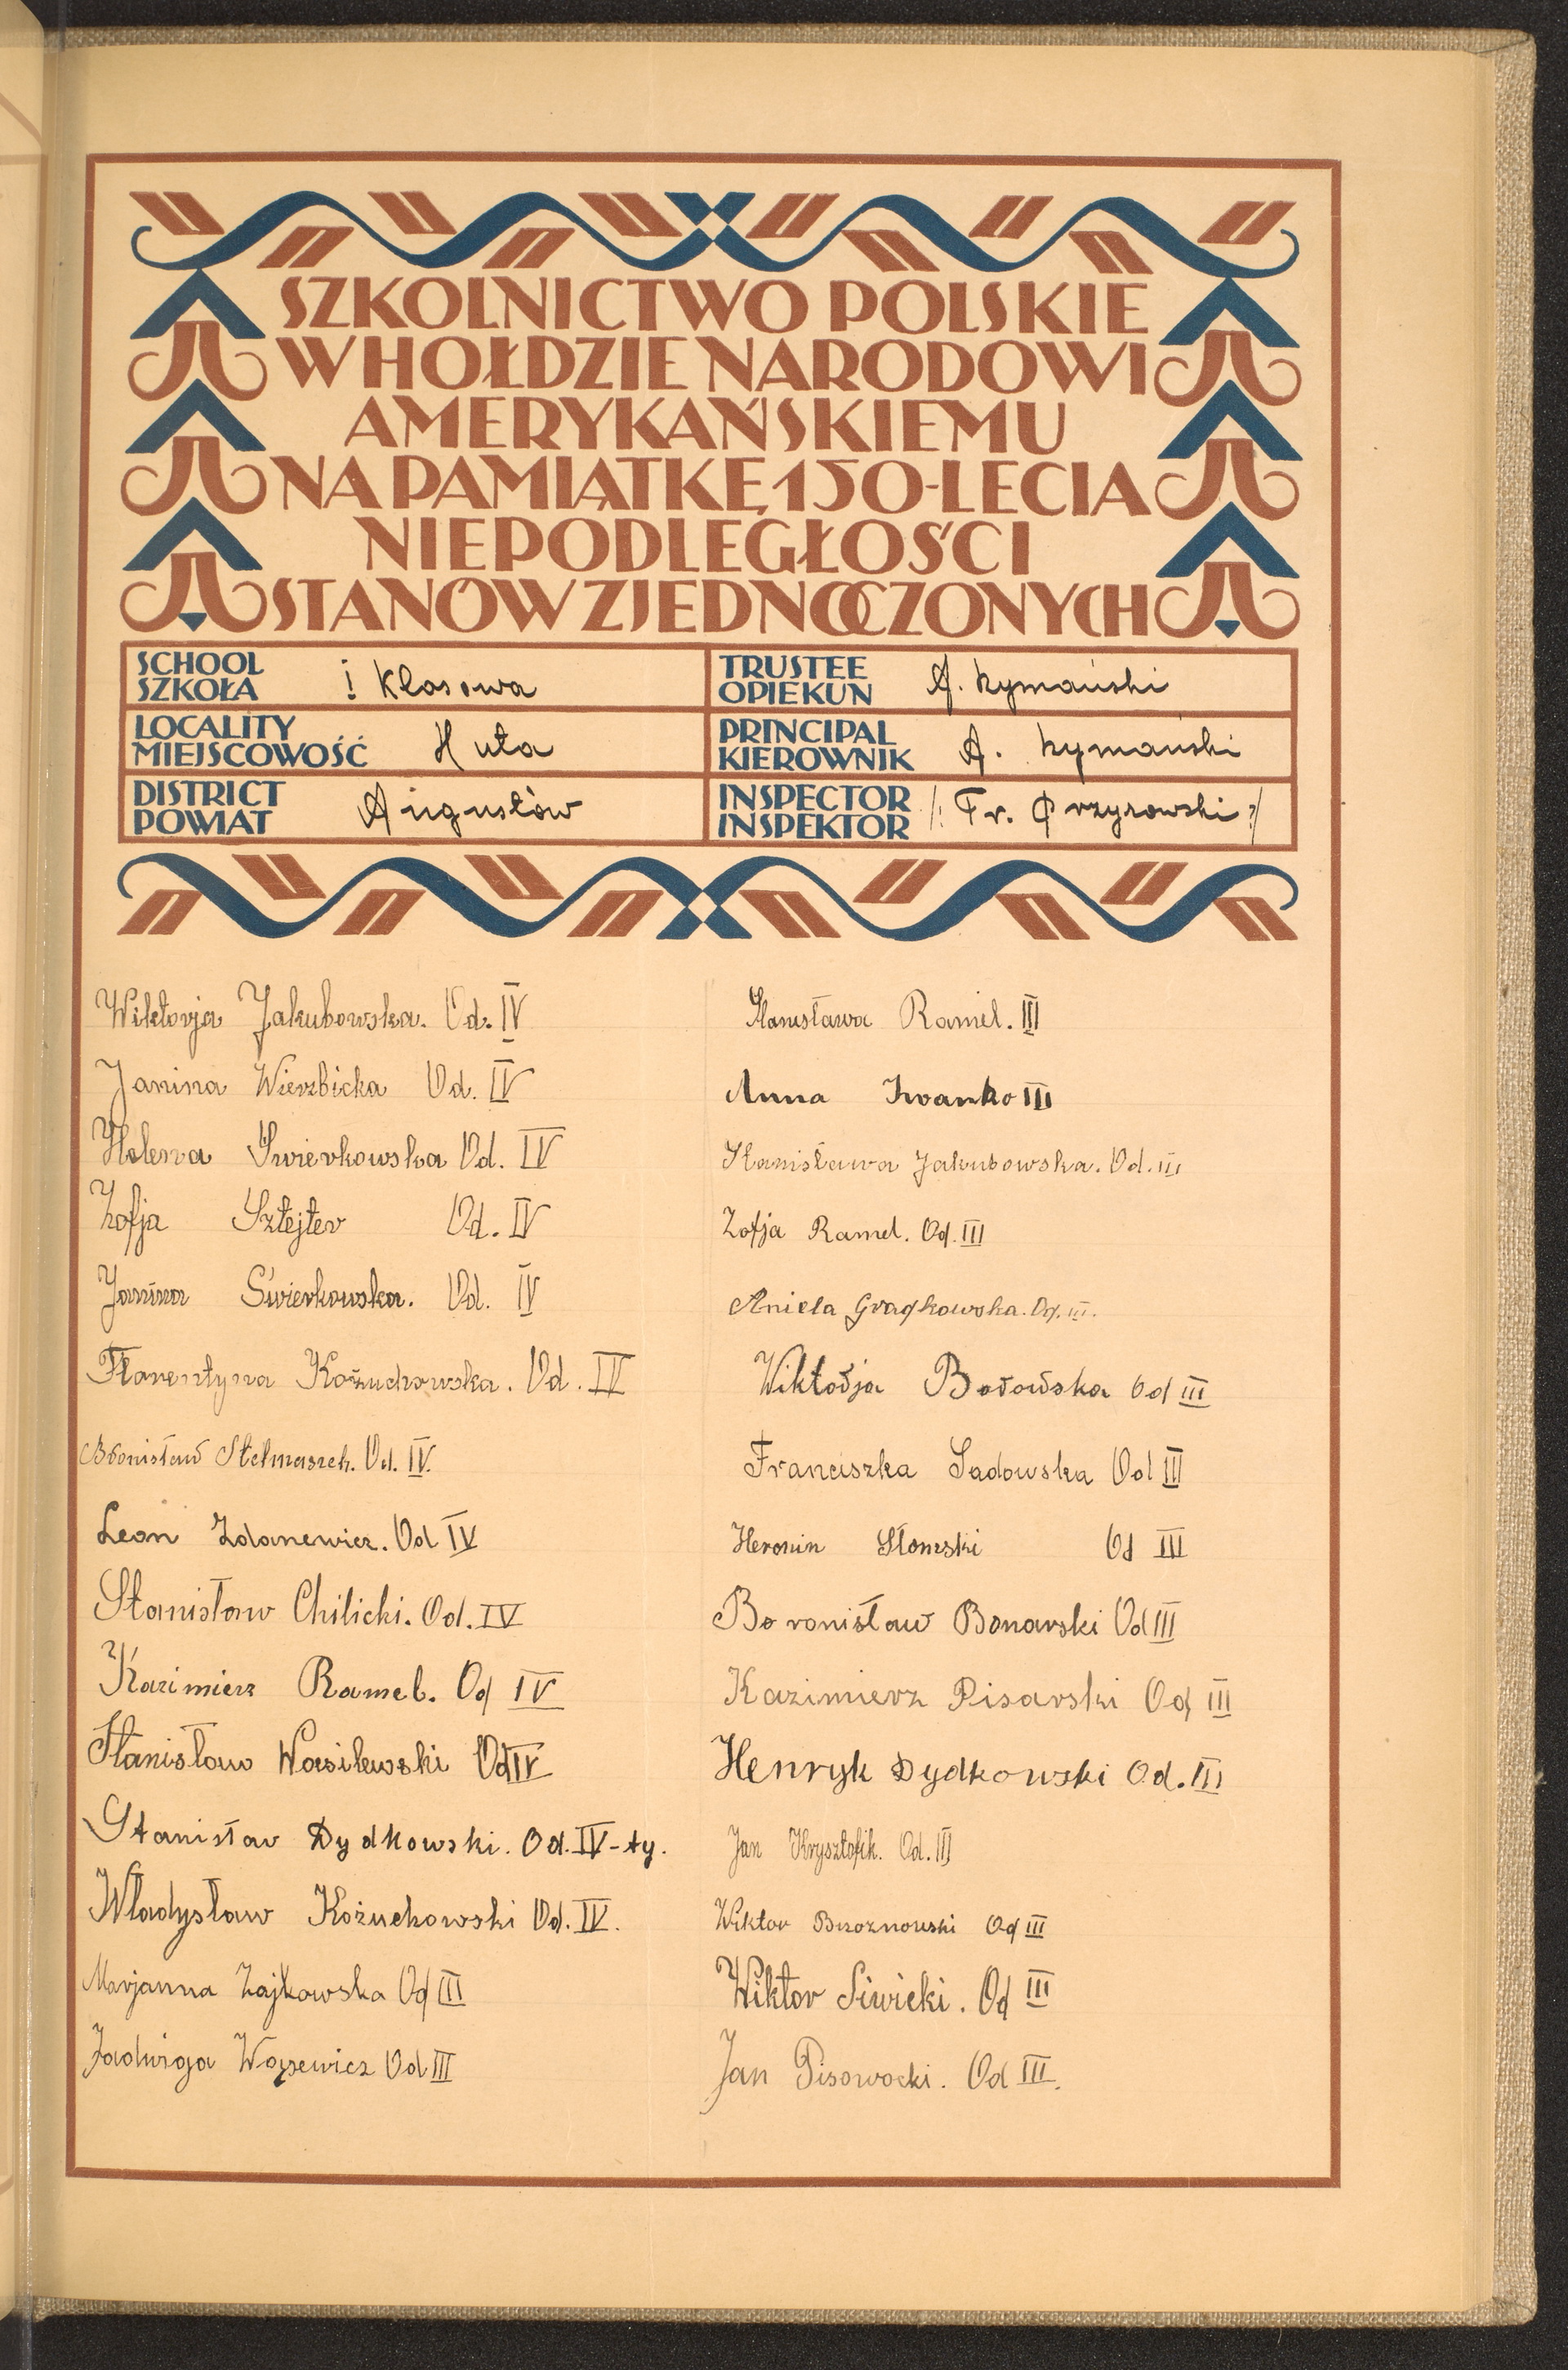 SZKOLNICTWO POLSKIE
W HOŁDZIE NARODOWI
AMERYKAŃSKIEMU
NA PAMIĄTKĘ 150-LECIA
NIEPODLEGŁOŚCI
STANÓW ZJEDNOCZONYCH
SCHOOL
SZKOŁA I Klasowa
TRUSTEE
OPIEKUN A. Rymański
LOCALITY
MIEJSCOWOŚĆ Huta
PRINCIPAL
KIEROWNIK A. Rymański
DISTRICT
POWIAT Augustów
INSPECTOR
INSPEKTOR /: Fr. :/
Wiktorja Jakubowska. Od. IV
Janina Wierzbicka Od. IV
Helena Swierkowska Od. IV
Zofja Sztejter Od. IV
Janina Świerkowska. Od. IV
Florentyna Kożuchowska. Od. IV
Bronisław Stelmaszek. Od. IV.
Leon Zdanewicz. Od IV
Stanisław Chilicki. Od. IV
Kazimierz Ramel. Od IV
Stanisław Wasilewski Od IV
Stanisław Dydkowski. Od. IV-ty.
Władysław Kożuchowski Od. IV.
Marjanna Zajkowska Od III
Jadwiga Wąsewicz Od III
Stanisława Ramel. III
Anna Iwanko III
Stanisława Jakubowska. Od. III
Zofja Ramel. Od. III
Aniela Od. III.
Wiktorja Borowska Od III
Franciszka Sadowska Od III
Heronim Słomski Od III
Boronisław Bonarski Od III
Kazimierz Pisarski Od III
Henryk Dydkowski Od. III
Jan Krysztofik. Od. III
Wiktor Od III
Wiktor Siwicki. Od III
Jan Od III.